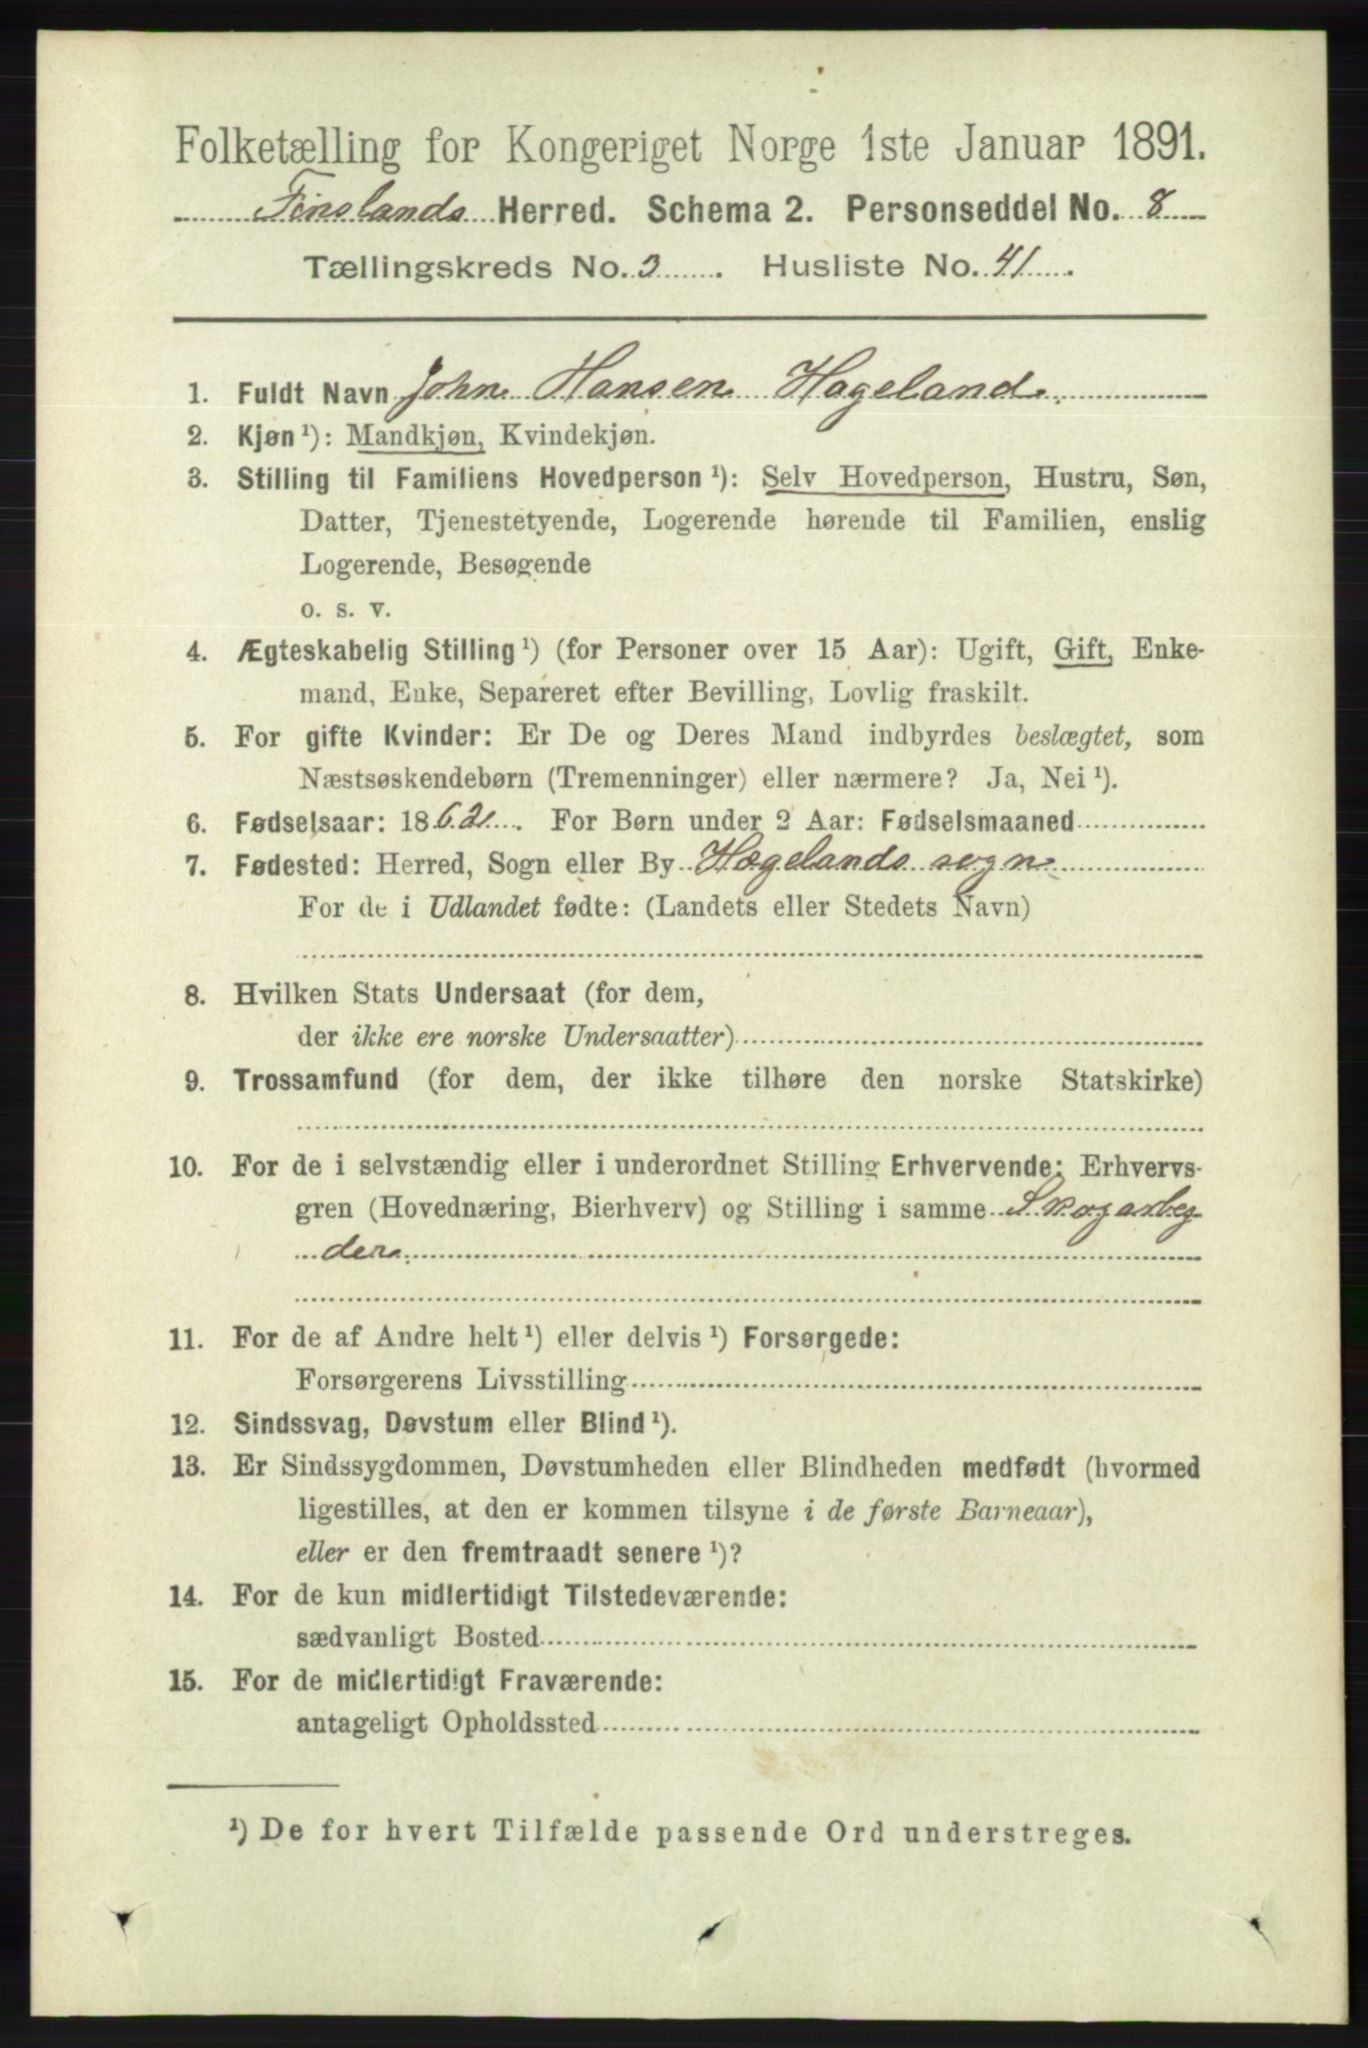 Folketælling for Kongeriget Norge 1ste Januar 1891.
Finslands Herred. Schema 2. Personseddel No. 8
Tællingskreds No. 3. Husliste No. 41.
1. Fuldt Navn John Hansen Hageland.
2. Kjøn ¹): Mandkjøn, Kvindekjøn.
3. Stilling til Familiens Hovedperson ¹): Selv Hovedperson, Hustru, Søn,
Datter, Tjenestetyende, Logerende hørende til Familien, enslig
Logerende, Besøgende
o. s. v.
4. Ægteskabelig Stilling ¹) (for Personer over 15 Aar): Ugift, Gift, Enke-
mand, Enke, Separeret efter Bevilling, Lovlig fraskilt.
5. For gifte Kvinder: Er De og Deres Mand indbyrdes beslægtet, som
Næstsøskendebørn (Tremenninger) eller nærmere? Ja, Nei ¹).
6. Fødselsaar: 1862. For Børn under 2 Aar: Fødselsmaaned
7. Fødested: Herred, Sogn eller By Hægelands sogn
For de i Udlandet fødte: (Landets eller Stedets Navn)
8. Hvilken Stats Undersaat (for dem,
der ikke ere norske Undersaatter)
9. Trossamfund (for dem, der ikke tilhøre den norske Statskirke)
10. For de i selvstændig eller i underordnet Stilling Erhvervende: Erhvervs-
gren (Hovednæring, Bierhverv) og Stilling i samme Skogarbej
der.
11. For de af Andre helt ¹) eller delvis ¹) Forsørgede:
Forsørgerens Livsstilling
12. Sindssvag, Døvstum eller Blind ¹).
13. Er Sindssygdommen, Døvstumheden eller Blindheden medfødt (hvormed
ligestilles, at den er kommen tilsyne i de første Barneaar),
eller er den fremtraadt senere ¹)?
14. For de kun midlertidigt Tilstedeværende:
sædvanligt Bosted
15. For de midlertidigt Fraværende:
antageligt Opholdssted
¹) De for hvert Tilfælde passende Ord understreges.